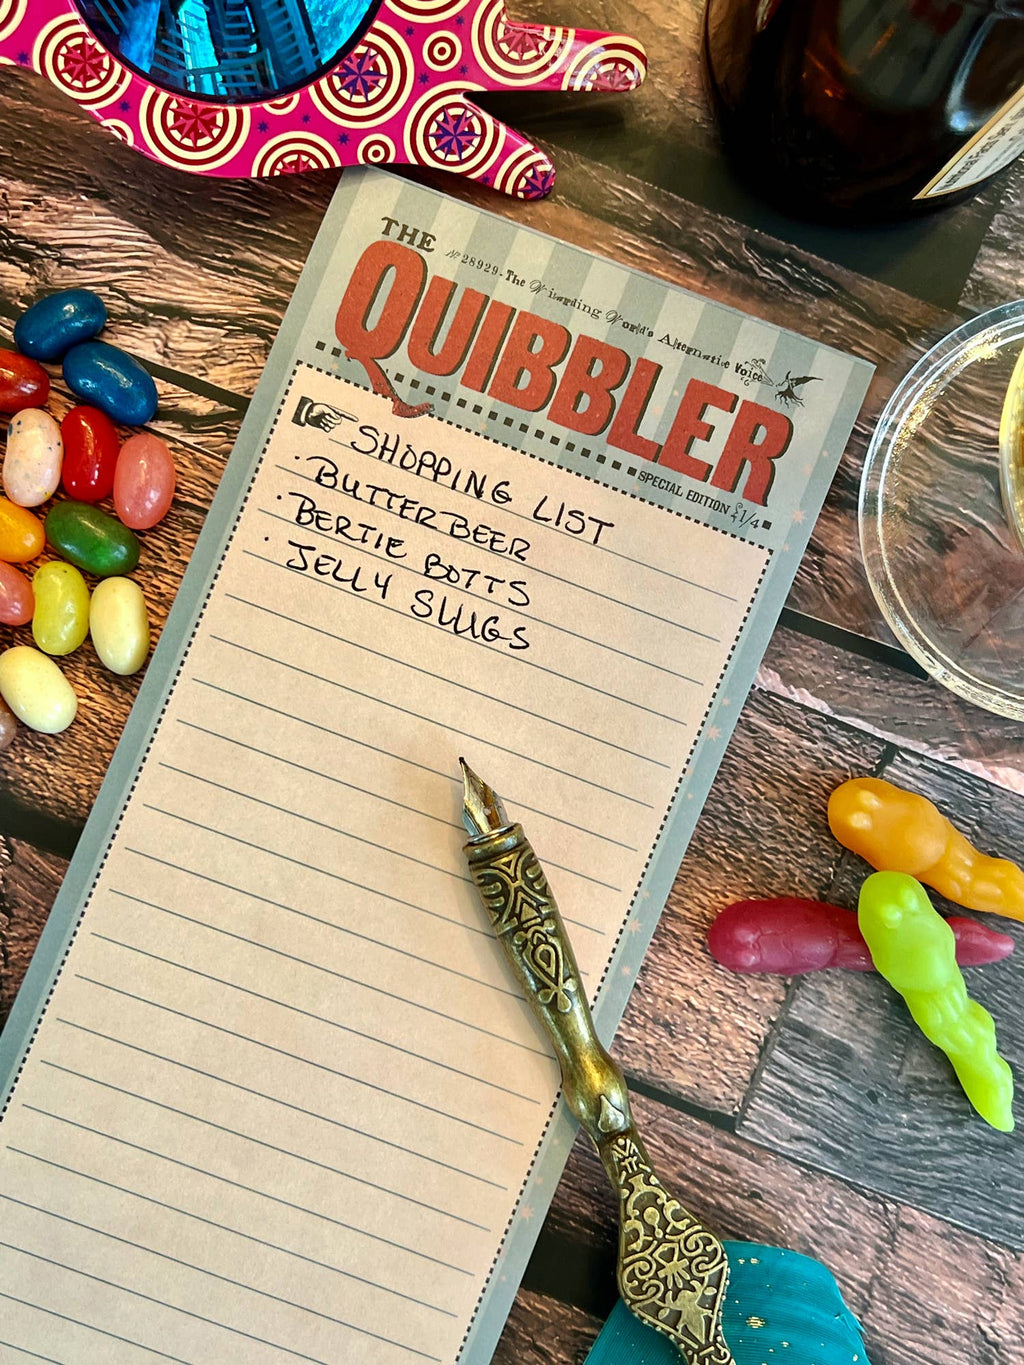 THE
Nº 28929 - The Wizarding World's Alternative Voice
QUIBBLER
SPECIAL EDITION
SHOPPING LIST
· BUTTERBEER
· BERTIE BOTTS
· JELLY SLUGS